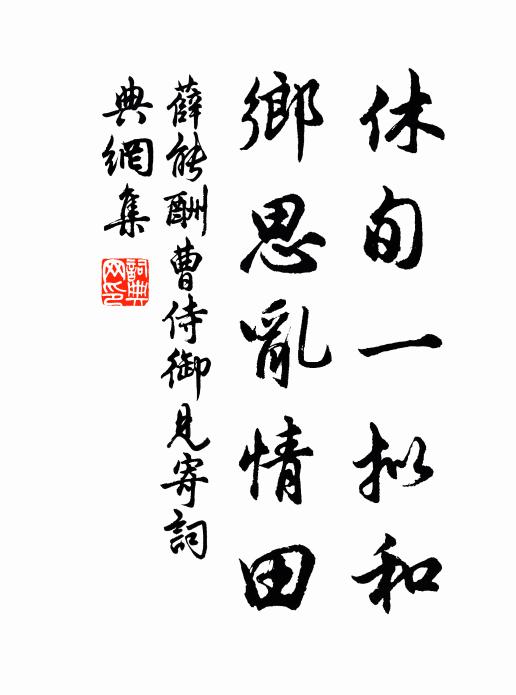 休旬一拟和
鄉思亂情田
薛能酬曹侍御見寄詞
典網集
詞典
网印